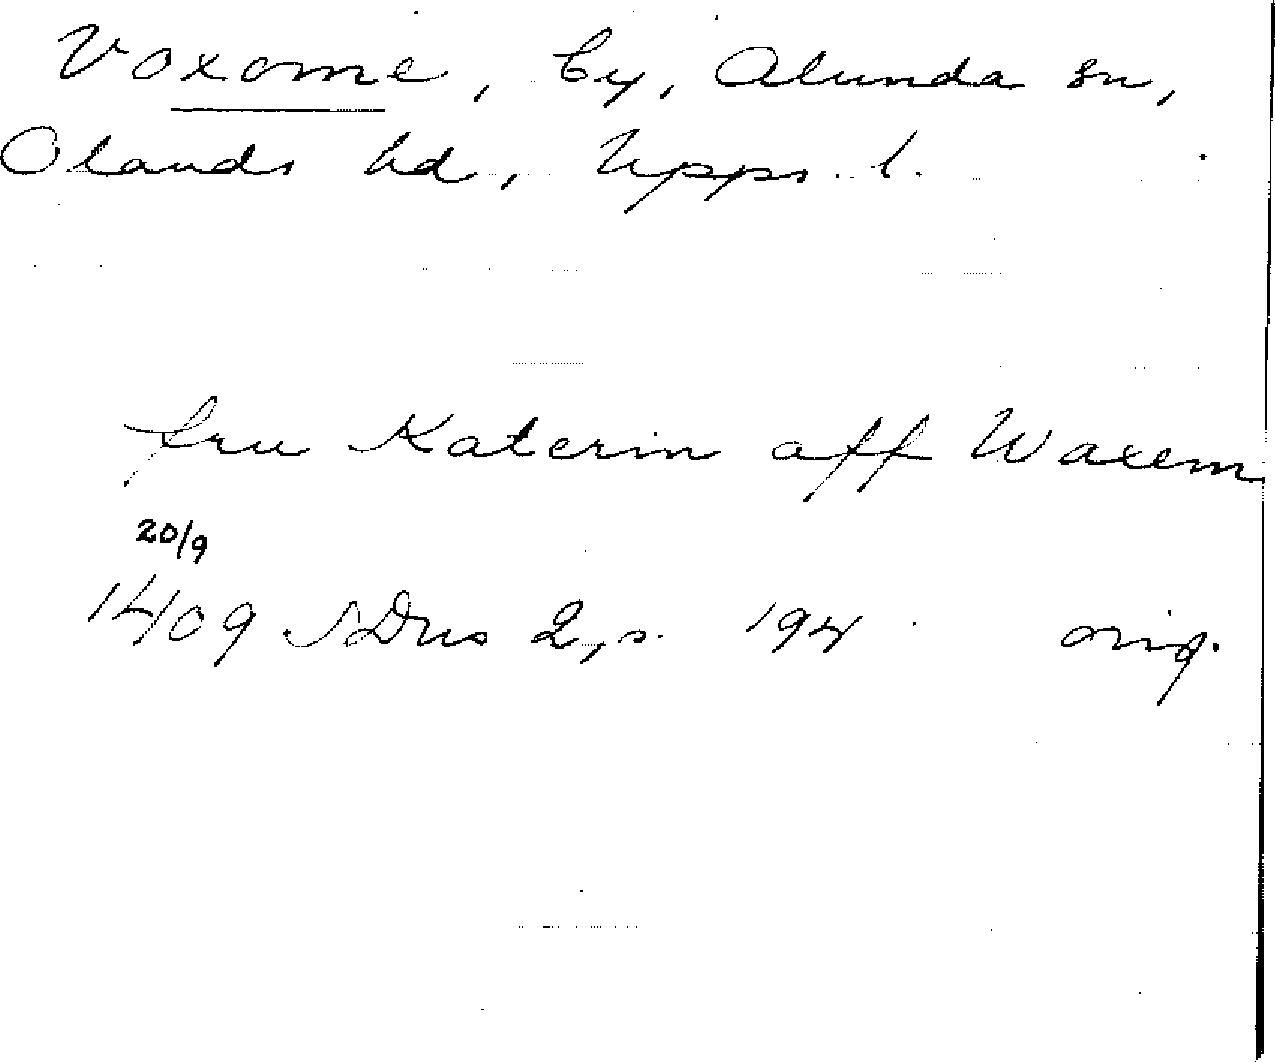 Voxome, by, Alunda sn,
Olands hd, Upps. l.
fru Katerin aff Waxem
20/9
1409 SDns 2, s. 194 orig.